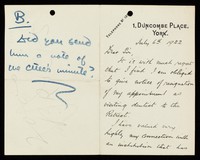 B.
Did you send
him a note of
our Cttee's minute?
TELEPHONE No
1, DUNCOMBE PLACE,
YORK.
July 25 1922
Dear Sir
It is with much regret
that I find I am obliged
to give notice of resignation
of my appointment as
visiting dentist to the
Retreat.
I have valued very
highly my connection with
an institution that has